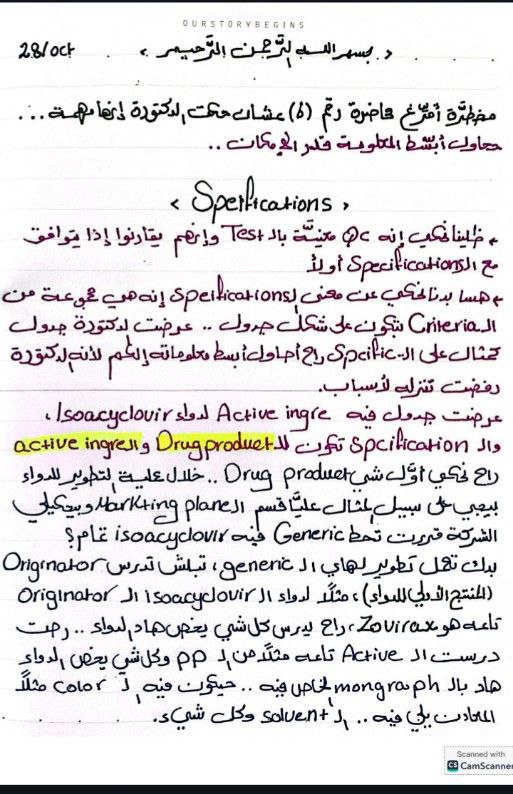 OURSTORYBEGINS
28/oct
< بسم الله الرّحمن الرّحيم >
مضطرّة أفرّغ محاضرة رقم (6) عشان حكت الدكتورة إنها مهمة ...
بحاول أبسّط المعلومة قدر الإمكان ..
< Speifications >
* ضلينا نحكي إنه QC معنيّة بالـ Test وإنهم يقارنوا إذا يتوافق
مع الـ Specifications أو لأ
* هسا بدنا نحكي عن معنى الـ Speifications إنه هي مجموعة من
الـ Criteria بتكون على شكل جدول .. عرضت الدكتورة جدول
كمثال على الـ Specific راح أحاول أبسط معلوماته إلكم لأنه الدكتورة
رفضت تنزله لأسباب.
عرضت جدول فيه Active ingre لدواء Isoacyclovir،
والـ Spcification تكون للـ Drug product والـ active ingre
راح نحكي أوّل شي Drug product .. خلال عملية التطوير للدواء
بيجي على سبيل المثال عليّا قسم الـ Markting plane وبيحكيلي
الشركة قررت تحط Generic فيه isoacyclovir تمام؟
بدك تعمل تطوير لهاي الـ generic، تبلش تدرس Originator
(المنتج الأولي للدواء)، مثلًا لدواء الـ isoacyclovir الـ Originator
تاعه هو Zovirax، راح يدرس كل شي يخص هاد الدواء .. رحت
درست الـ Active تاعه مثلًا من الـ pp وكل شي يخص الدواء
هاد بالـ mongraph الخاص فيه .. حيكون فيه الـ color مثلًا
المعادن يلي فيه .. الـ solvent وكل شيء.
Scanned with
CS CamScanner